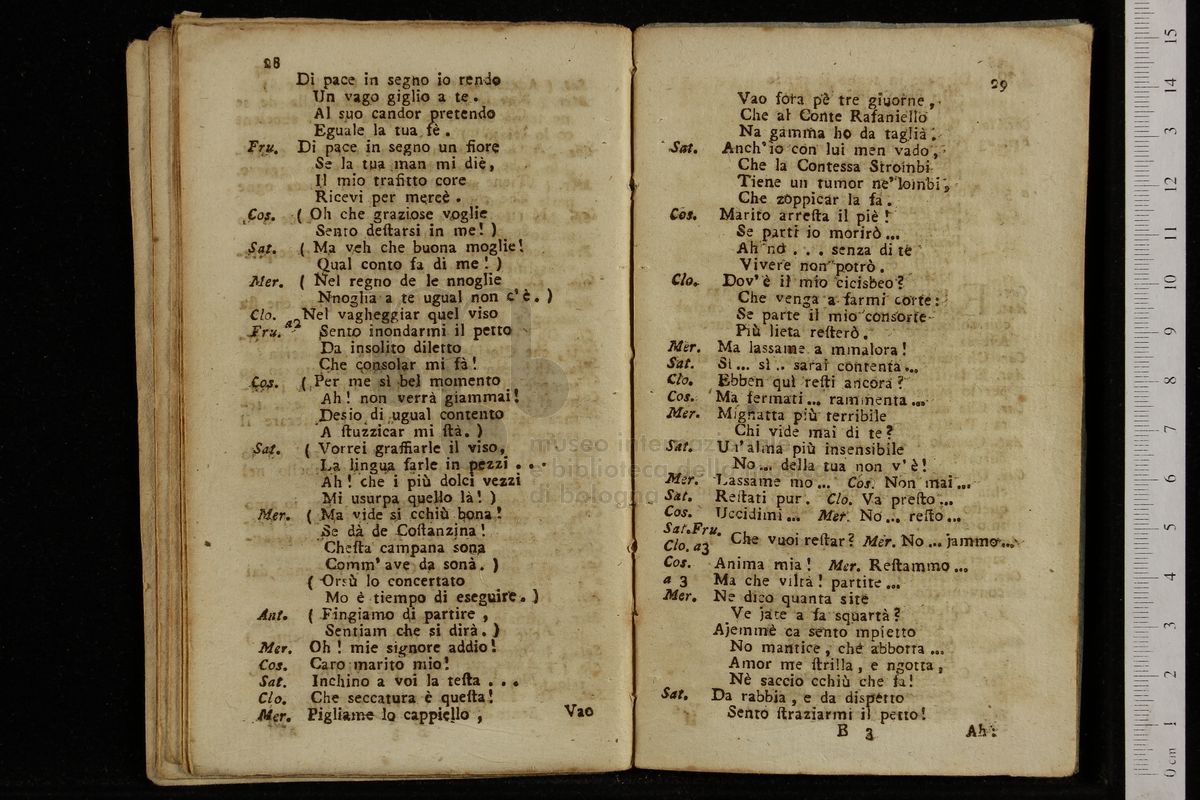 28
Di pace in segno io rendo
Un vago giglio a te.
Al suo candor pretendo
Eguale la tua fè.
Fru. Di pace in segno un fiore
Se la tua man mi diè,
Il mio trafitto core
Ricevi per mercè.
Cos. (Oh che graziose voglie
Sento deſtarsi in me!)
Sat. (Ma veh che buona moglie!
Qual conto fa di me!)
Mer. (Nel regno de le nnoglie
Nnoglia a te ugual non c'è.)
Clo. Nel vagheggiar quel viso
Fru. a2 Sento inondarmi il petto
Da insolito diletto
Che consolar mi fà!
Cos. (Per me sì bel momento
Ah! non verrà giammai!
Desio di ugual contento
A ſtuzzicar mi ſtà.)
Sat. (Vorrei graffiarle il viso,
La lingua farle in pezzi . . .
Ah! che i più dolci vezzi
Mi usurpa quello là!)
Mer. (Ma vide si cchiù bona!
Se dà de Coſtanzina!
Cheſta campana sona
Comm' ave da sonà.)
(Orsù lo concertato
Mo è tiempo di eseguire.)
Ant. (Fingiamo di partire,
Sentiam che si dirà.)
Mer. Oh! mie signore addio!
Cos. Caro marito mio!
Sat. Inchino a voi la teſta . . .
Clo. Che seccatura è queſta!
Mer. Pigliame lo cappiello,
Vao
29
Vao fora pè tre giuorne,
Che al Conte Rafaniello
Na gamma ho da taglià.
Sat. Anch'io con lui men vado,
Che la Contessa Strombi
Tiene un tumor ne' lombi,
Che zoppicar la fa.
Cos. Marito arreſta il piè!
Se parti io morirò...
Ah no . . . senza di te
Vivere non potrò.
Clo. Dov'è il mio cicisbeo?
Che venga a farmi corte:
Se parte il mio consorte
Più lieta reſterò.
Mer. Ma lassame a mmalora!
Sat. Sì... sì.. sarai contenta...
Clo. Ebben quì reſti ancora?
Cos. Ma fermati... rammenta...
Mer. Mignatta più terribile
Chi vide mai di te?
Sat. Un'alma più insensibile
No... della tua non v'è!
Mer. Lassame mo... Cos. Non mai...
Sat. Reſtati pur. Clo. Va preſto...
Cos. Uccidimi... Mer. No... reſto...
Sat. Fru.
Clo. a3 Che vuoi reſtar? Mer. No... jammo...
Cos. Anima mia! Mer. Reſtammo...
a 3 Ma che viltà! partite...
Mer. Ne dico quanta site
Ve jate a fa squartà?
Ajemmè ca sento mpietto
No mantice, che abborra...
Amor me ſtrilla, e ngotta,
Nè saccio cchiù che fa!
Sat. Da rabbia, e da dispetto
Sento ſtraziarmi il petto!
B 3
Ah!
museo internazionale
e biblioteca della musica
di bologna
0 cm 1 2 3 4 5 6 7 8 9 10 11 12 13 14 15